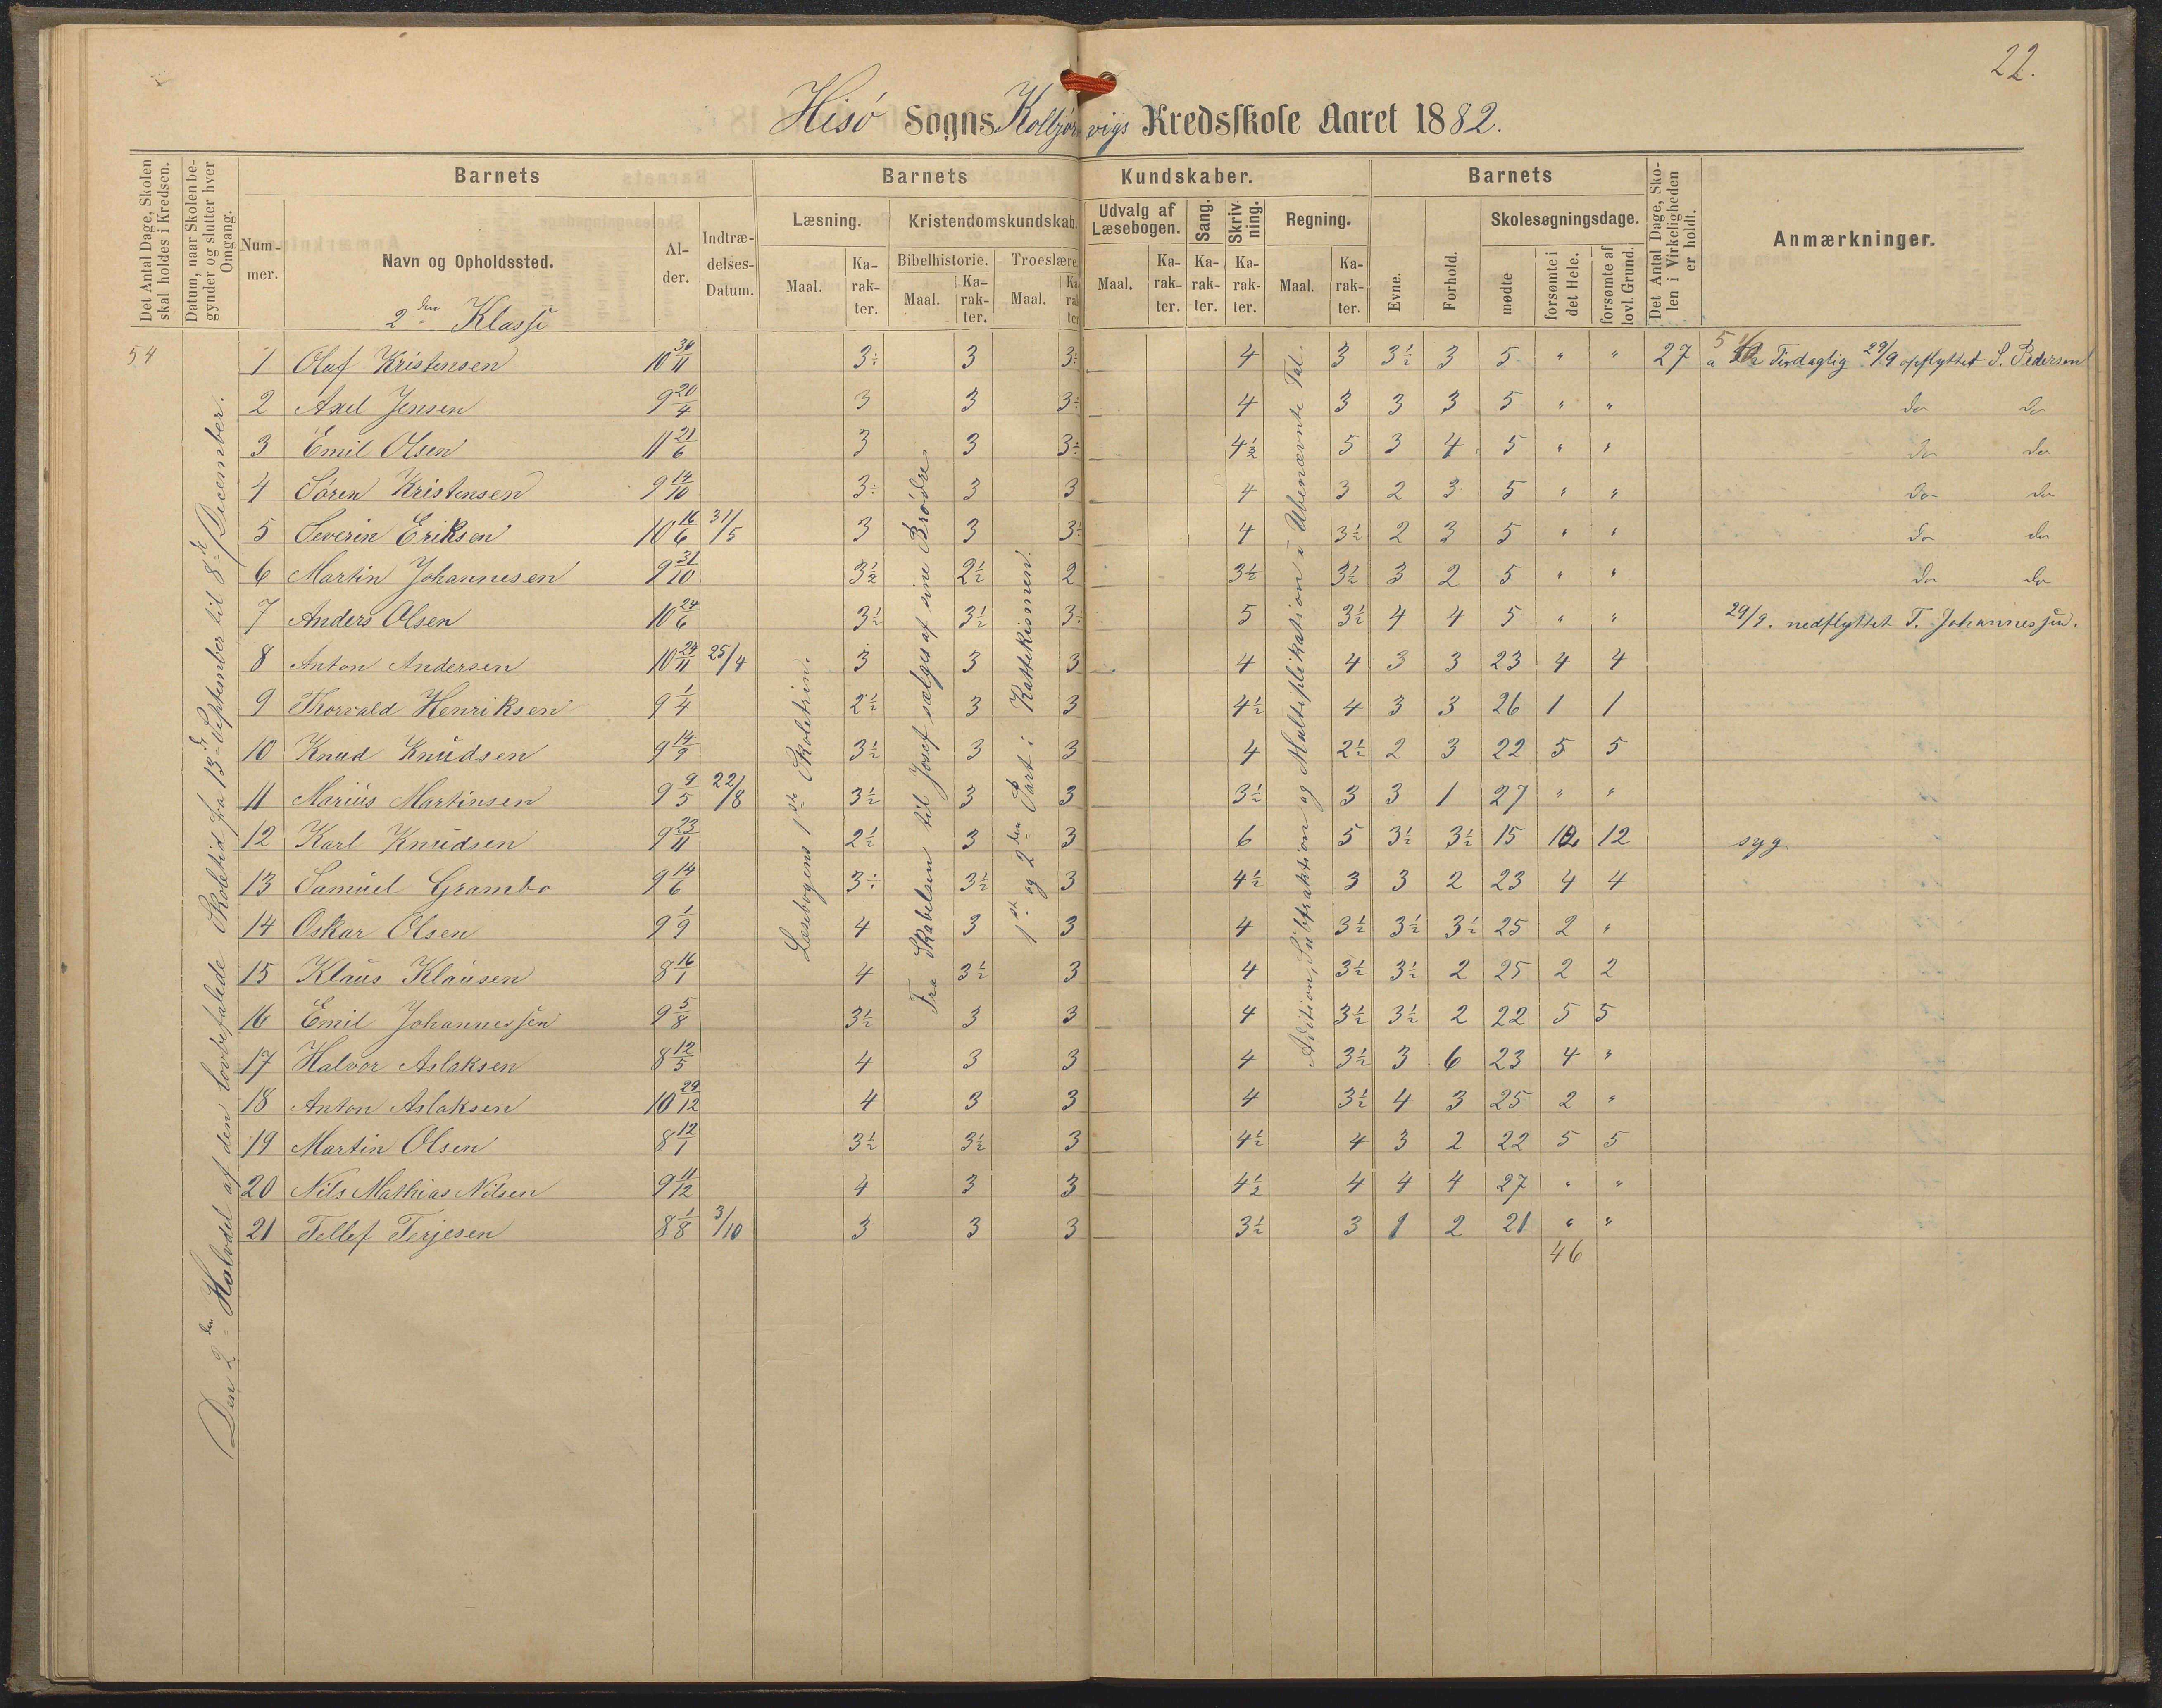 22.
Hisö Sogns Kolbjørnsvigs Kredsskole Aaret 1882.
Det Antal Dage, Skolen skal holdes i Kredsen.
Datum, naar Skolen begynder og slutter hver Omgang.
Barnets
Barnets Kundskaber.
Barnets
Det Antal Dage, Skolen i Virkeligheden er holdt.
Anmærkninger.
Nummer.
Navn og Opholdssted.
Alder.
Indtrædelses-Datum.
Læsning.
Kristendomskundskab.
Udvalg af Læsebogen.
Sang.
Skrivning.
Regning.
Evne.
Forhold.
Skolesøgningsdage.
Bibelhistorie.
Troeslære.
Maal.
Karakter.
Maal.
Karakter.
Maal.
Maal.
Karakter.
Karakter.
Karakter.
Maal.
Karakter.
mødte
forsømte i det Hele.
forsømte af lovl. Grund.
2den Klasse
54
Den 2den Halvdel af den lovbefalede Skoletid fra 13de September til 8de December.
Læsebogens 1ste Skoletrin.
Fra Skabelsen til Josef sælges af sine Brödre.
1ste og 2den Part i Kattekismen.
Adition, Subtraktion og Multiplikation i Ubenævnte Tal.
1 Oluf Kristensen 10 30/11 3÷ 3 3÷ 4 3 3½ 3 5 " " 27 Tirdaglig 29/9 opflyttet S. Pedersen
2 Axel Jensen 9 20/4 3 3 3÷ 4 3 3 3 5 " " do do
3 Emil Olsen 11 21/6 3 3 3÷ 4½ 5 3 4 5 " " do do
4 Sören Kristensen 9 14/10 3÷ 3 3 4 3 2 3 5 " " do do
5 Severin Eriksen 10 16/6 31/5 3 3 3÷ 4 3½ 2 3 5 " " do do
6 Martin Johannesen 9 31/10 3½ 2½ 2 3½ 3½ 3 2 5 " " do do
7 Anders Olsen 10 24/6 3½ 3½ 3÷ 5 3½ 4 4 5 " " 29/9. nedflyttet T. Johannessen.
8 Anton Andersen 10 24/11 25/4 3 3 3 4 4 3 3 23 4 4
9 Thorvald Henriksen 9 1/4 2½ 3 3 4½ 4 3 3 26 1 1
10 Knud Knudsen 9 14/9 3½ 3 3 4 2½ 2 3 22 5 5
11 Marius Martinsen 9 9/5 22/8 3½ 3 3 3½ 3 3 1 27 " "
12 Karl Knudsen 9 23/11 2½ 3 3 6 5 3½ 3½ 15 12 12 syg
13 Samuel Grambo 9 14/6 3÷ 3½ 3 4½ 3 3 2 23 4 4
14 Oskar Olsen 9 1/9 4 3 3 4 3½ 3½ 3½ 25 2 "
15 Klaus Klausen 8 16/1 4 3½ 3 4 3½ 3½ 2 25 2 2
16 Emil Johannessen 9 5/8 3½ 3 3 4 3½ 3½ 2 22 5 5
17 Halvor Aslaksen 8 12/5 4 3 3 4 3½ 3 6 23 4 "
18 Anton Aslaksen 10 29/12 4 3 3 4 3½ 4 3 25 2 "
19 Martin Olsen 8 12/1 3½ 3½ 3 4½ 4 3 2 22 5 5
20 Nils Mathias Nilsen 9 11/12 4 3 3 4½ 4 4 4 27 " "
21 Tellef Terjesen 8 1/8 3/10 3 3 3 3½ 3 1 2 21 " "
46